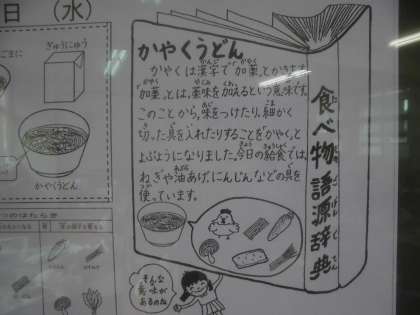 日(水)
ごまに
ぎゅうにゅう
かやくうどん
かやくうどん
かやくは漢字で「加薬」とかきます。
「加薬」とは、薬味を加えるという意味です。
このことから、味をつけたり、細かく
切った具を入れたりすることをかやくと
よぶようになりました。今日の給食では、
ねぎや油あげ、にんじん、などの具を
使っています。
食べ物語源辞典
そんな
意味が
あるのね